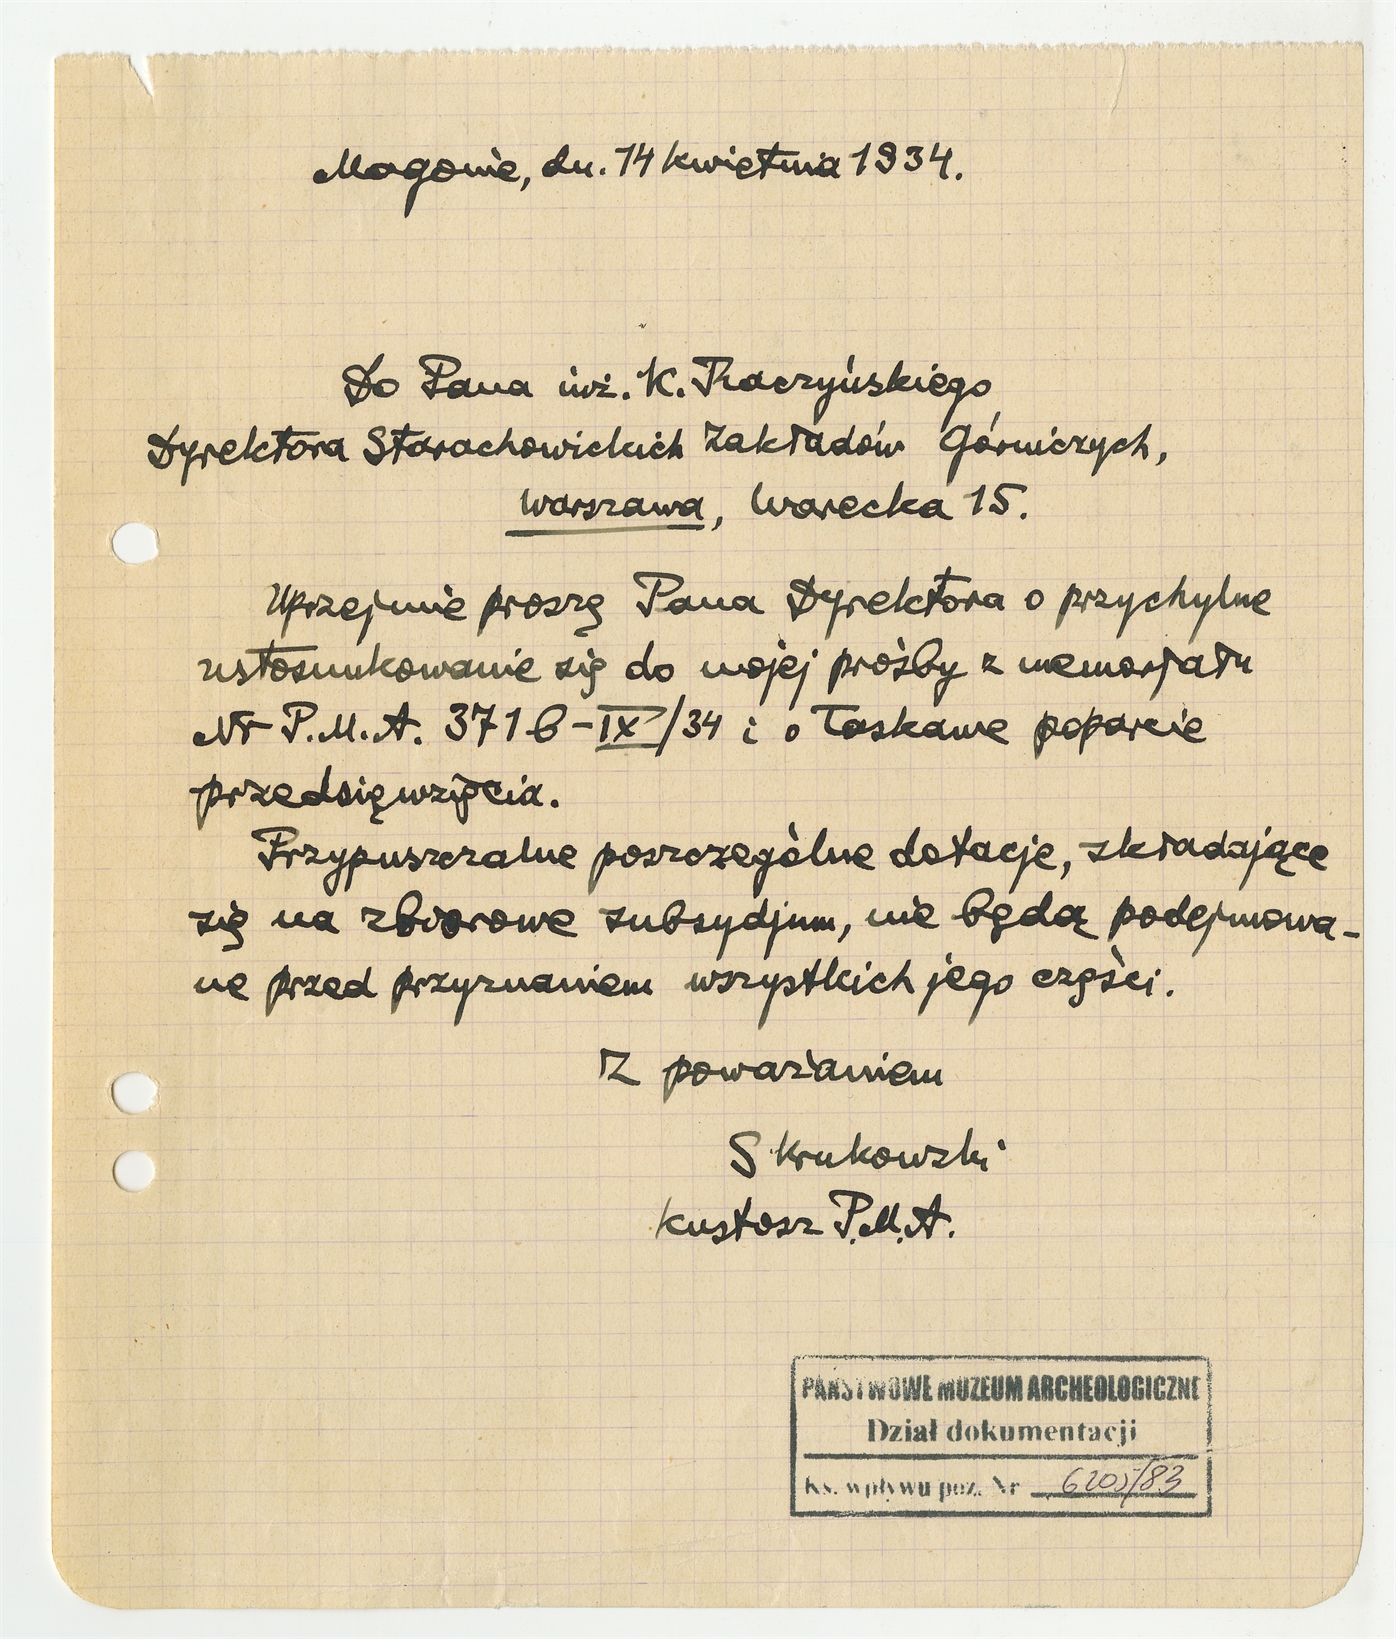 Magonie, dn. 14 kwietnia 1934.
Do Pana inż. K. Raczyńskiego
Dyrektora Starachowickich Zakładów Górniczych,
Warszawa, Warecka 15.
Uprzejmie proszę Pana Dyrektora o przychylne
ustosunkowanie się do mojej prośby z memorjału
Nr P.M.A. 371b-IX/34 i o łaskawe poparcie
przedsięwzięcia.
Przypuszczalne poszczególne dotacje, składające
się na zbiorowe subsydjum, nie będą podejmowa-
ne przed przyznaniem wszystkich jego części.
Z poważaniem
S Krukowski
Kustosz P.M.A.
PAŃSTWOWE MUZEUM ARCHEOLOGICZNE
Dział dokumentacji
Ks. wpływu poz. Nr 6205/83